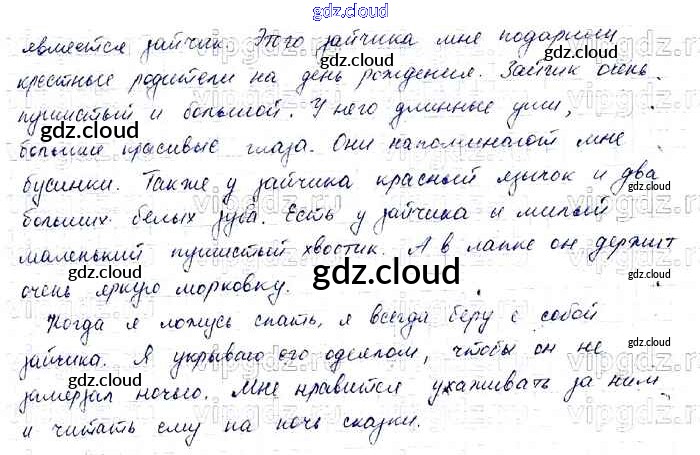 gdz.cloud
является зайчик. Этого зайчика мне подарили
крестные родители на день рождения. Зайчик очень
gdz.cloud
пушистый и большой. У него длинные уши,
gdz.cloud
gdz.cloud
большие красивые глаза. Они напоминают мне
бусинки. Также у зайчика красный язычок и два
gdz.cloud
gdz.cloud
больших белых зуба. Есть у зайчика и милый
маленький пушистый хвостик. А в лапке он держит
gdz.cloud
очень яркую морковку.
gdz.cloud
Когда я ложусь спать, я всегда беру с собой
gdz.cloud
зайчика. Я укрываю его одеялом, чтобы он не
gdz.cloud
gdz.cloud
замерзал ночью. Мне нравится ухаживать за ним
и читать ему на ночь сказки.
gdz.cloud